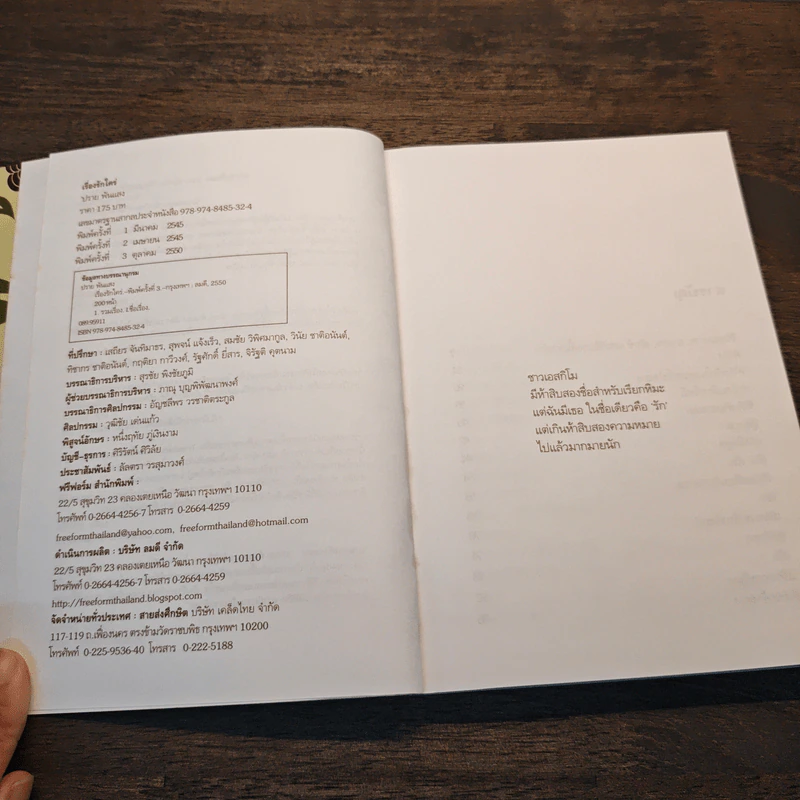 เรื่องรักใคร่
ปราย พันแสง
ราคา 175 บาท
เลขมาตรฐานสากลประจำหนังสือ 978-974-8485-32-4
พิมพ์ครั้งที่ 1 มีนาคม 2545
พิมพ์ครั้งที่ 2 เมษายน 2545
พิมพ์ครั้งที่ 3 ตุลาคม 2550
ข้อมูลทางบรรณานุกรม
ปราย พันแสง
เรื่องรักใคร่.-พิมพ์ครั้งที่ 3.-กรุงเทพฯ : ลมดี, 2550
200 หน้า
1. รวมเรื่อง. I.ชื่อเรื่อง.
089.95911
ISBN 978-974-8485-32-4
ที่ปรึกษา : เสถียร จันทิมาธร, สุพจน์ แจ้งเร็ว, สมชัย วิพิศมากูล, วินัย ชาติอนันต์,
ทิชากร ชาติอนันต์, กฤติยา กาวีวงศ์, รัฐศักดิ์ ยี่สาร, จิรัฐติ คุตนาม
บรรณาธิการบริหาร : สุรชัย พิงชัยภูมิ
ผู้ช่วยบรรณาธิการบริหาร : ภาณุ บุญพิพัฒนาพงศ์
บรรณาธิการศิลปกรรม : อัญชลีพร วรชาติตระกูล
ศิลปกรรม : วุฒิชัย เด่นแก้ว
พิสูจน์อักษร : หนึ่งฤทัย ภู่เงินงาม
บัญชี-ธุรการ : ศิริรัตน์ ศิวิลัย
ประชาสัมพันธ์ : ลัลตรา วรสุมาวงศ์
ฟรีฟอร์ม สำนักพิมพ์ :
22/5 สุขุมวิท 23 คลองเตยเหนือ วัฒนา กรุงเทพฯ 10110
โทรศัพท์ 0-2664-4256-7 โทรสาร 0-2664-4259
freeformthailand@yahoo.com, freeformthailand@hotmail.com
ดำเนินการผลิต : บริษัท ลมดี จำกัด
22/5 สุขุมวิท 23 คลองเตยเหนือ วัฒนา กรุงเทพฯ 10110
โทรศัพท์ 0-2664-4256-7 โทรสาร 0-2664-4259
http://freeformthailand.blogspot.com
จัดจำหน่ายทั่วประเทศ : สายส่งศึกษิต บริษัท เคล็ดไทย จำกัด
117-119 ถ.เฟื่องนคร ตรงข้ามวัดราชบพิธ กรุงเทพฯ 10200
โทรศัพท์ 0-225-9536-40 โทรสาร 0-222-5188
ชาวเอสกิโม
มีห้าสิบสองชื่อสำหรับเรียกหิมะ
แต่ฉันมีเธอ ในชื่อเดียวคือ 'รัก'
แต่เกินห้าสิบสองความหมาย
ไปแล้วมากมายนัก